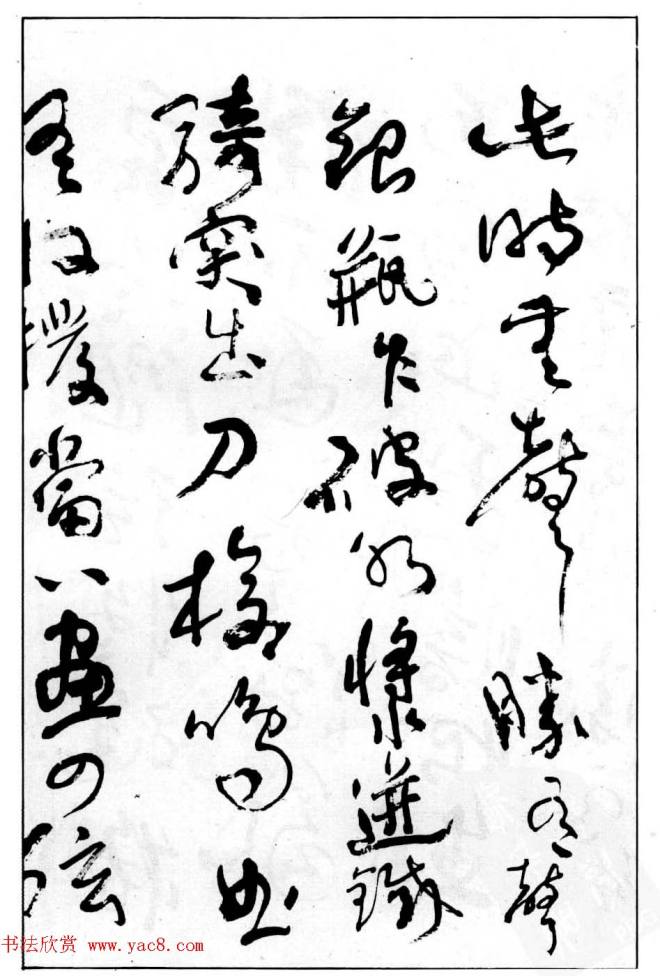 此時無聲勝有聲
銀瓶乍破水漿迸鐵
騎突出刀槍鳴曲
終收撥當心畫四弦
书法欣赏 www.yac8.com